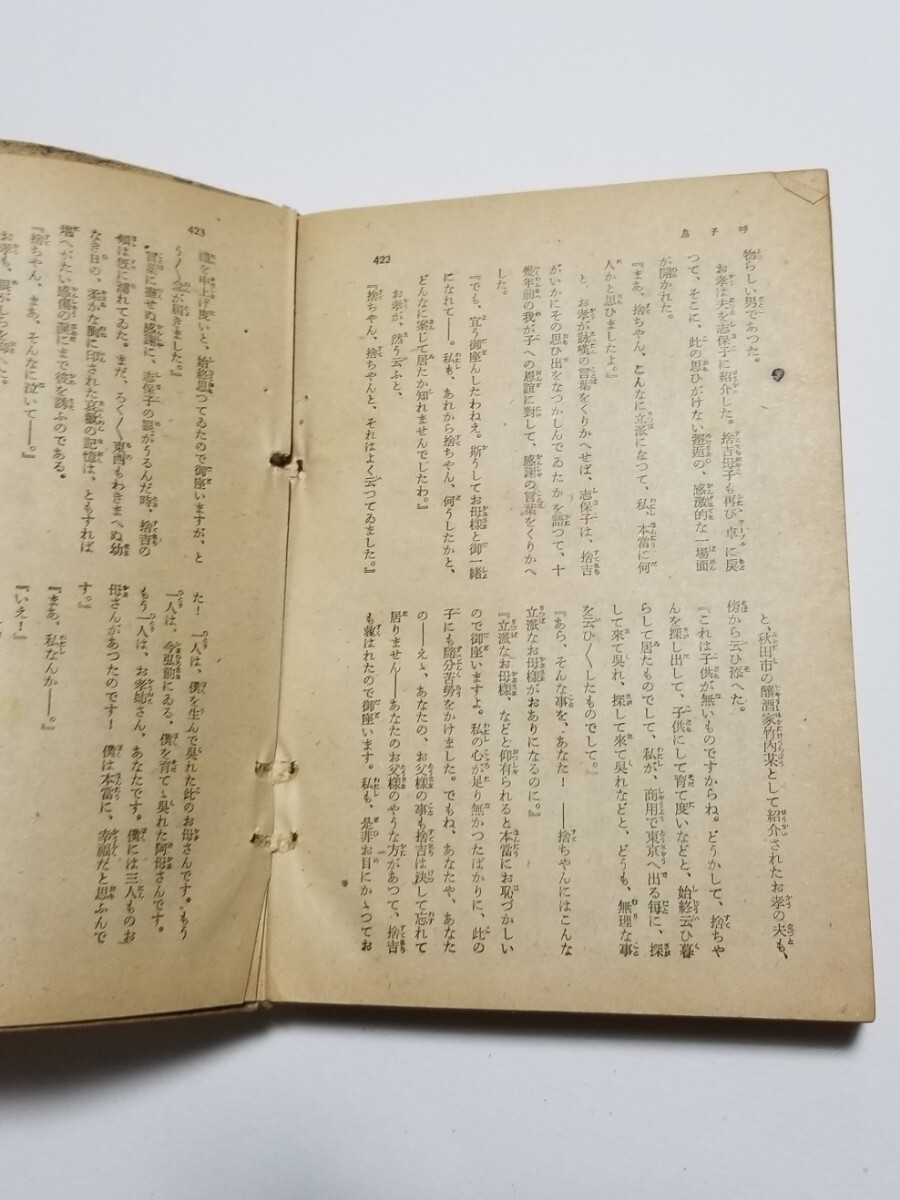 呼子鳥
422
物らしい男であつた。
お孝は夫を志保子に紹介した。捨吉母子も再び、卓に戻
つて、そこに、此の思ひがけない邂逅の、感激的な一場面
が開かれた。
『まあ、捨ちやん、こんなに立派になつて、私、本當に何
人かと思ひましたよ。』
と、お孝が詠嘆の言葉をくりかへせば、志保子は、捨吉
がいかにその思ひ出をなつかしんでゐたかを語つて、十
幾年前の我が子への恩誼に對して、感謝の言葉をくりかへ
した。
『でも、宜う御座んしたわねえ。斯うしてお母樣と御一緒
になれて――。私も、あれから捨ちやん、何うしたかと、
どんなに案じて居たか知れませんでしたわ。』
お孝が、然う云ふと、
『捨ちやん、捨ちやんと、それはよく云つてゐました。』
と、秋田市の釀酒家竹内某として紹介されたお孝の夫も、
傍から云ひ添へた。
『これは子供が無いものですからね。どうかして、捨ちや
んを探し出して、子供にして育て度いなどと、始終云ひ暮
らして居たものでして、私が、商用で東京へ出る每に、探
して來て吳れ、探して來て吳れなどと、どうも、無理な事
を云ひ〱したものでして。』
『あら、そんな事を、あなた！――捨ちやんにはこんな
立派なお母樣がおありになるのに。』
『立派なお母樣、などと仰有られると本當にお恥づかしい
ので御座いますよ。私の心が足り無かつたばかりに、此の
子にも隨分苦勞をかけました。でもね、あなたや、あなた
の――えゝ、あなたの、お父樣の事も捨吉は決して忘れて
居りません――あなたのお父樣のやうな方があつて、捨吉
も救はれたので御座います。私も、是非お目にかゝつてお
423
禮を申上げ度いと、始終思つてゐたので御座いますが、と
う〱念が屆きました。』
言葉に盡せぬ感謝に、志保子の眼がうるんだ時、捨吉の
頰は旣に濡れてゐた。まだ、ろく〱東西もわきまへぬ幼
なき日の、柔かな胸に印された哀歡の記憶は、ともすれば
堪へがたい感傷の淚にまで彼を誘ふのである。
『捨ちやん、まあ、そんなに泣いて――。』
お孝も、眼がしらを
た！　一人は、僕を生んで吳れた此のお母さんです。もう
一人は、今弘前にゐる、僕を育てゝ吳れた阿母さんです。
もう一人は、お孝姉さん、あなたです。僕には三人ものお
母さんがあつたのです！　僕は本當に、幸福だと思ふんで
す。』
『まあ、私なんか――。』
『いえ！